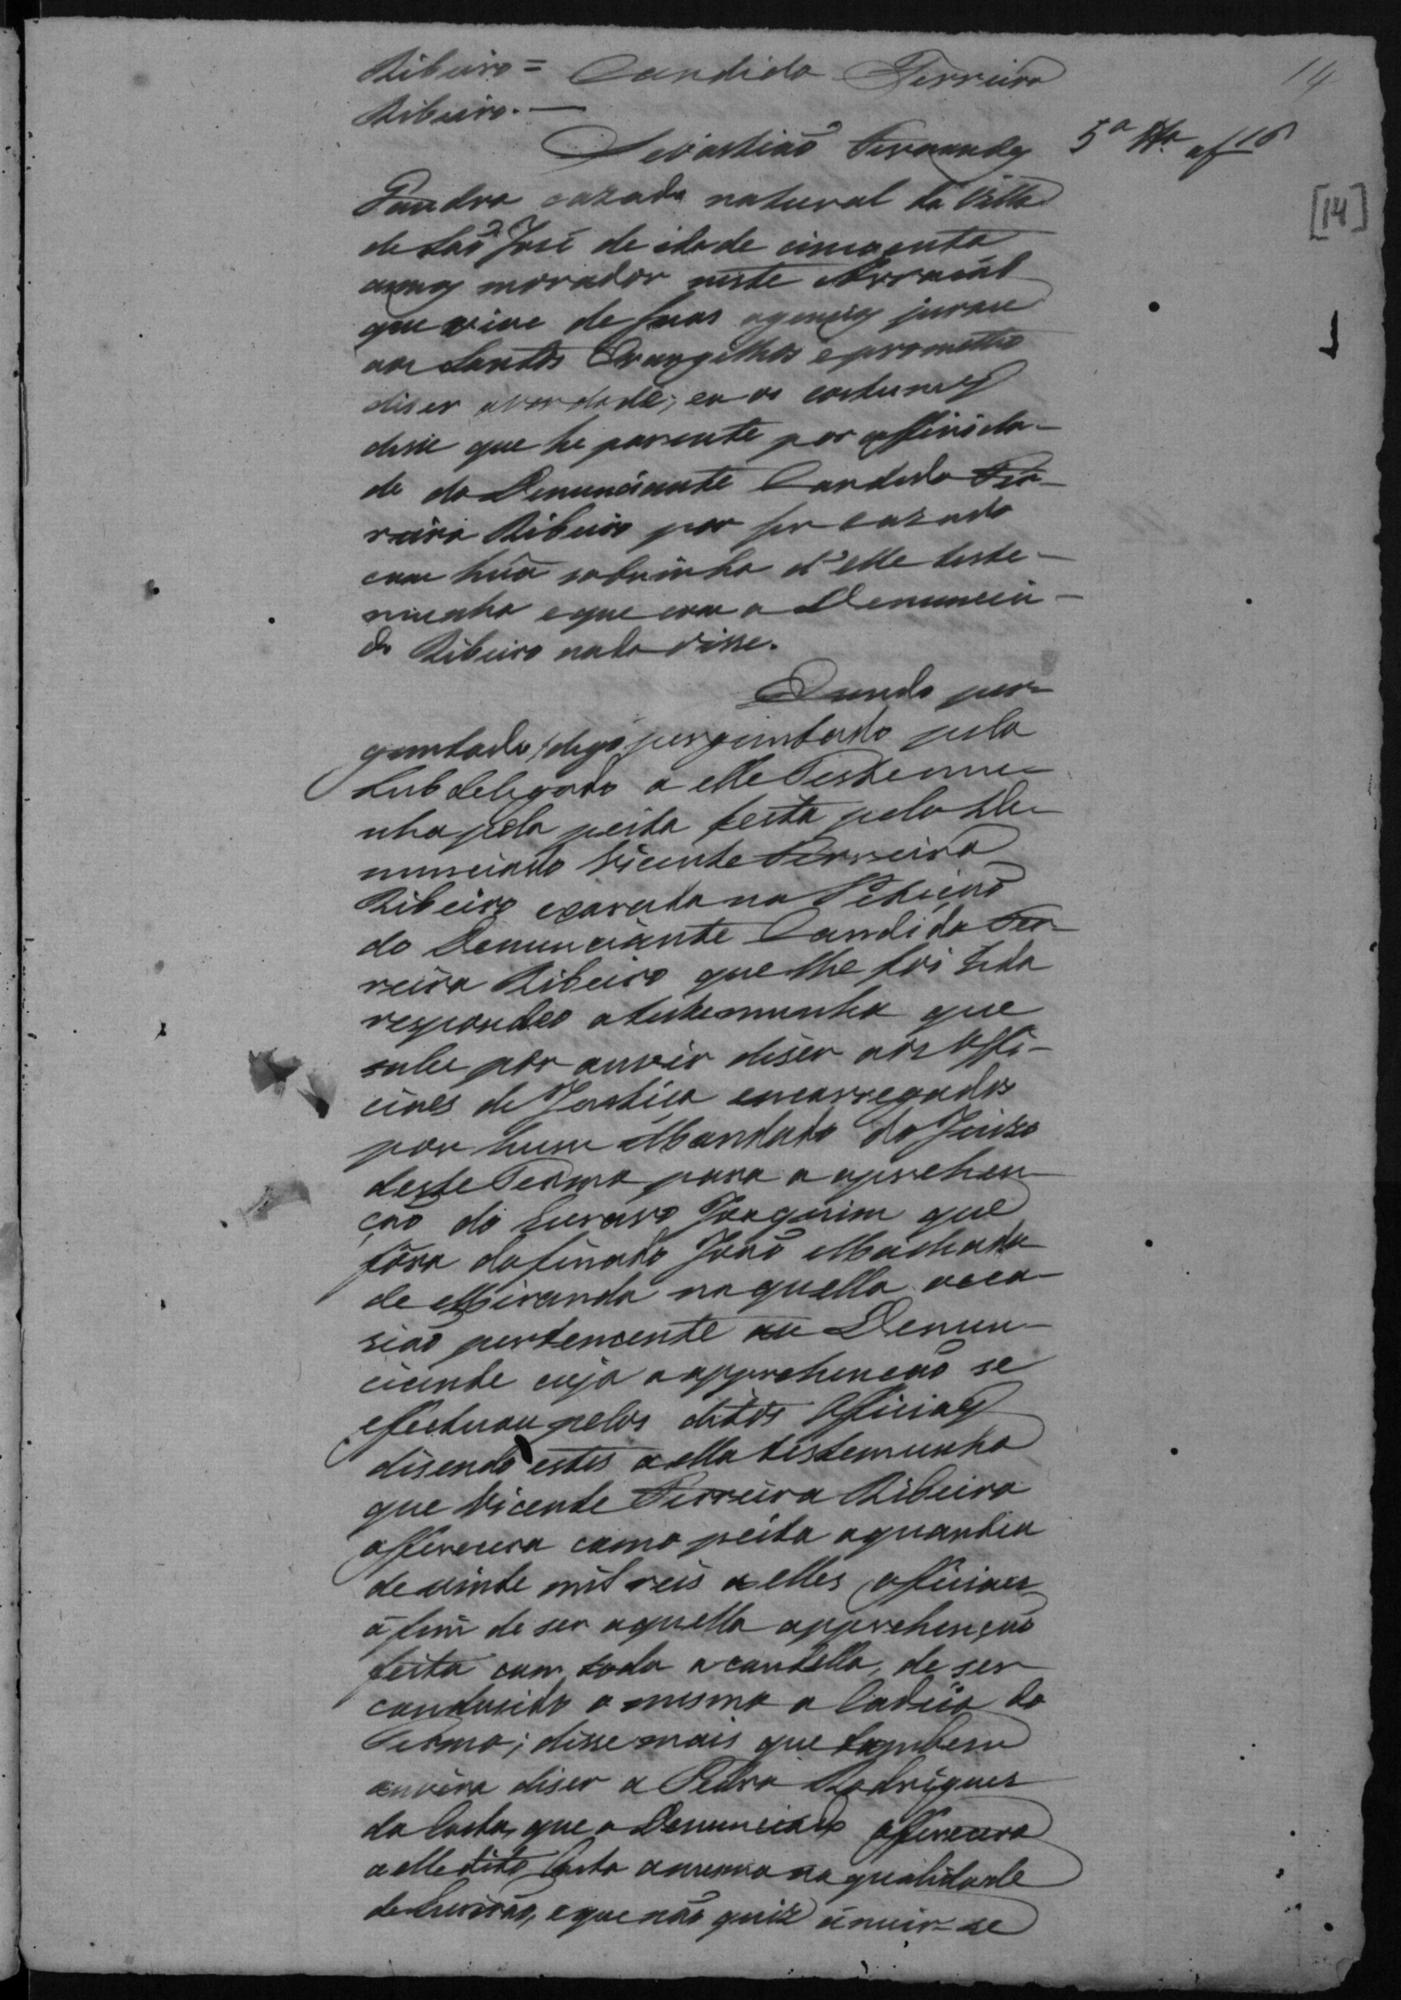 14
Ribeiro = Candido Ferreira
Ribeiro. —
Sebastiaõ Fernandes 5ª Tta. af 16
[14]
Pandra cazado natural da Villa
de Saõ José de idade cincoenta
annos morador neste Arraial
que vive de suas agencias jurou
aos Santos Evangelhos e prometteo
diser averdade; e aos costumes
disse que he parente por affinida-
de do Denunciante Candido Fer-
reira Ribeiro por ser cazado
com hũa sobrinha d'elle teste-
munha e que com o Denuncia-
do Ribeiro nada disse.
Sendo per-
guntado, digo perguntado pelo
Subdelegado a elle Testemu-
nha pela peita feita pelo De-
nunciado Vicente Ferreira
Ribeiro exarada na Petiçaõ
do Denunciante Candido Fer-
reira Ribeiro que lhe foi lida
respondeo a testemunha que
sabe por ouvir diser aos Offi-
ciaes de Justiça encarregados
por hum Mandado do Juizo
deste Termo para a aprehen-
çaõ do Escravo Joaquim que
fôra do finado Joaõ Machado
de Miranda naquella occa-
siaõ pertencente ao Denun-
ciante cuja a apprehençaõ se
effectuou pelos ditos Officiaes
disendo estes a elle testemunha
que Vicente Ferreira Ribeiro
offerecera como peita a quantia
de vinte mil reis a elles officiaes
á fim de ser aquella apprehençaõ
feita com toda a cautella, de ser
condusido o mesmo a Cadeia do
Termo; disse mais que tambem
ouvira diser a Pedro Rodrigues
da Costa, que o Denunciado offerecera
a elle dito Costa a mesma na qualidade
de Escrivaõ, e que naõ quiz anuir-se